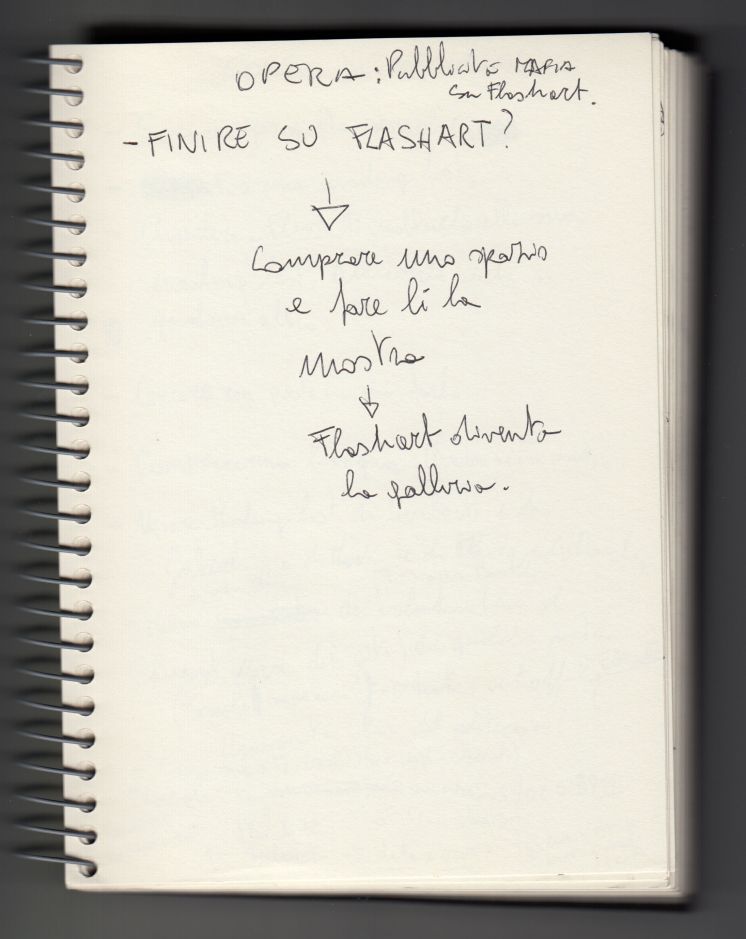 OPERA: Pubblicità MAFIA
su Flashart.
- FINIRE SU FLASHART?
Comprare uno spazio
e fare lì la
mostra
Flashart diventa
la galleria.